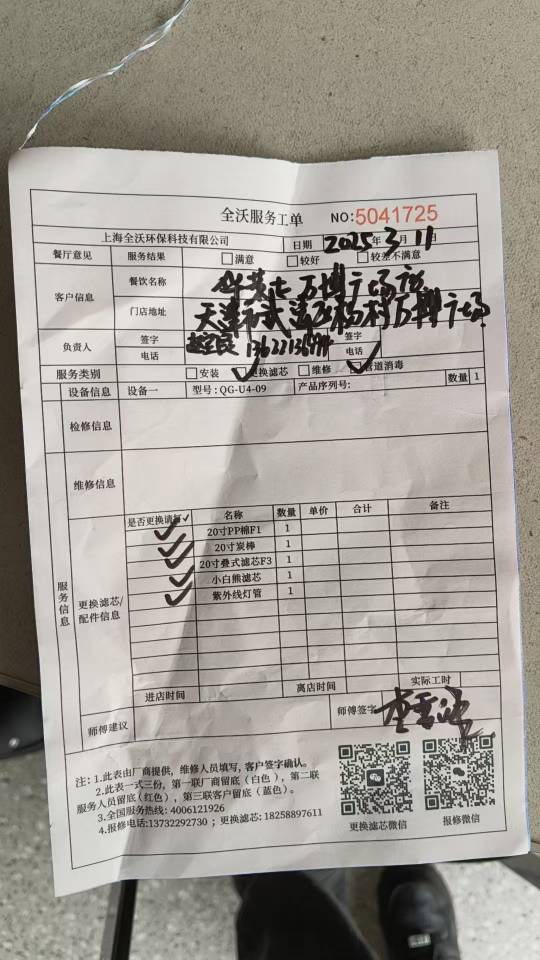 全沃服务工单 NO:5041725
上海全沃环保科技有限公司 日期 2025年3月11日
餐厅意见 服务结果 □满意 □较好 □较差不满意
客户信息 餐饮名称 万博广场店
门店地址 天津市武清区杨村万博广场
负责人 签字 签字
电话 电话
服务类别 □安装 ✓更换滤芯 □维修 ✓管道消毒
设备信息 设备一 型号:QG-U4-09 产品序列号: 数量 1
检修信息
服务信息
维修信息
更换滤芯/配件信息
是否更换请打✓ 名称 数量 单价 合计 备注
✓ 20寸PP棉F1 1
✓ 20寸炭棒 1
✓ 20寸叠式滤芯F3 1
✓ 小白熊滤芯 1
✓ 紫外线灯管 1
进店时间 离店时间 实际工时
师傅建议 师傅签字
注:1.此表由厂商提供,维修人员填写,客户签字确认。
2.此表一式三份,第一联厂商留底(白色),第二联
服务人员留底(红色),第三联客户留底(蓝色)。
3.全国服务热线:4006121926
4.报修电话:13732292730;更换滤芯:18258897611
更换滤芯微信 报修微信